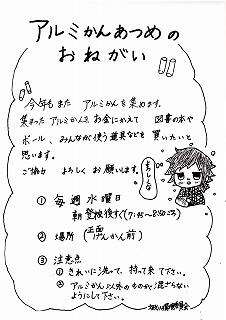 アルミかんあつめの
おねがい
今年もまた アルミかんを集めます。
集まったアルミかんを お金にかえて 図書の本や
ボール、みんなが使う道具などを 買いたいと
思います。
ご協力 よろしく お願いします。
よろしくな
① 毎週水曜日
朝 登校後すぐ(7:45〜8:50ごろ)
② 場所 (正面げんかん前)
③ 注意点
① きれいに洗って、持って来て下さい。
② アルミかん以外のものが、混ざらない
ようにして下さい。